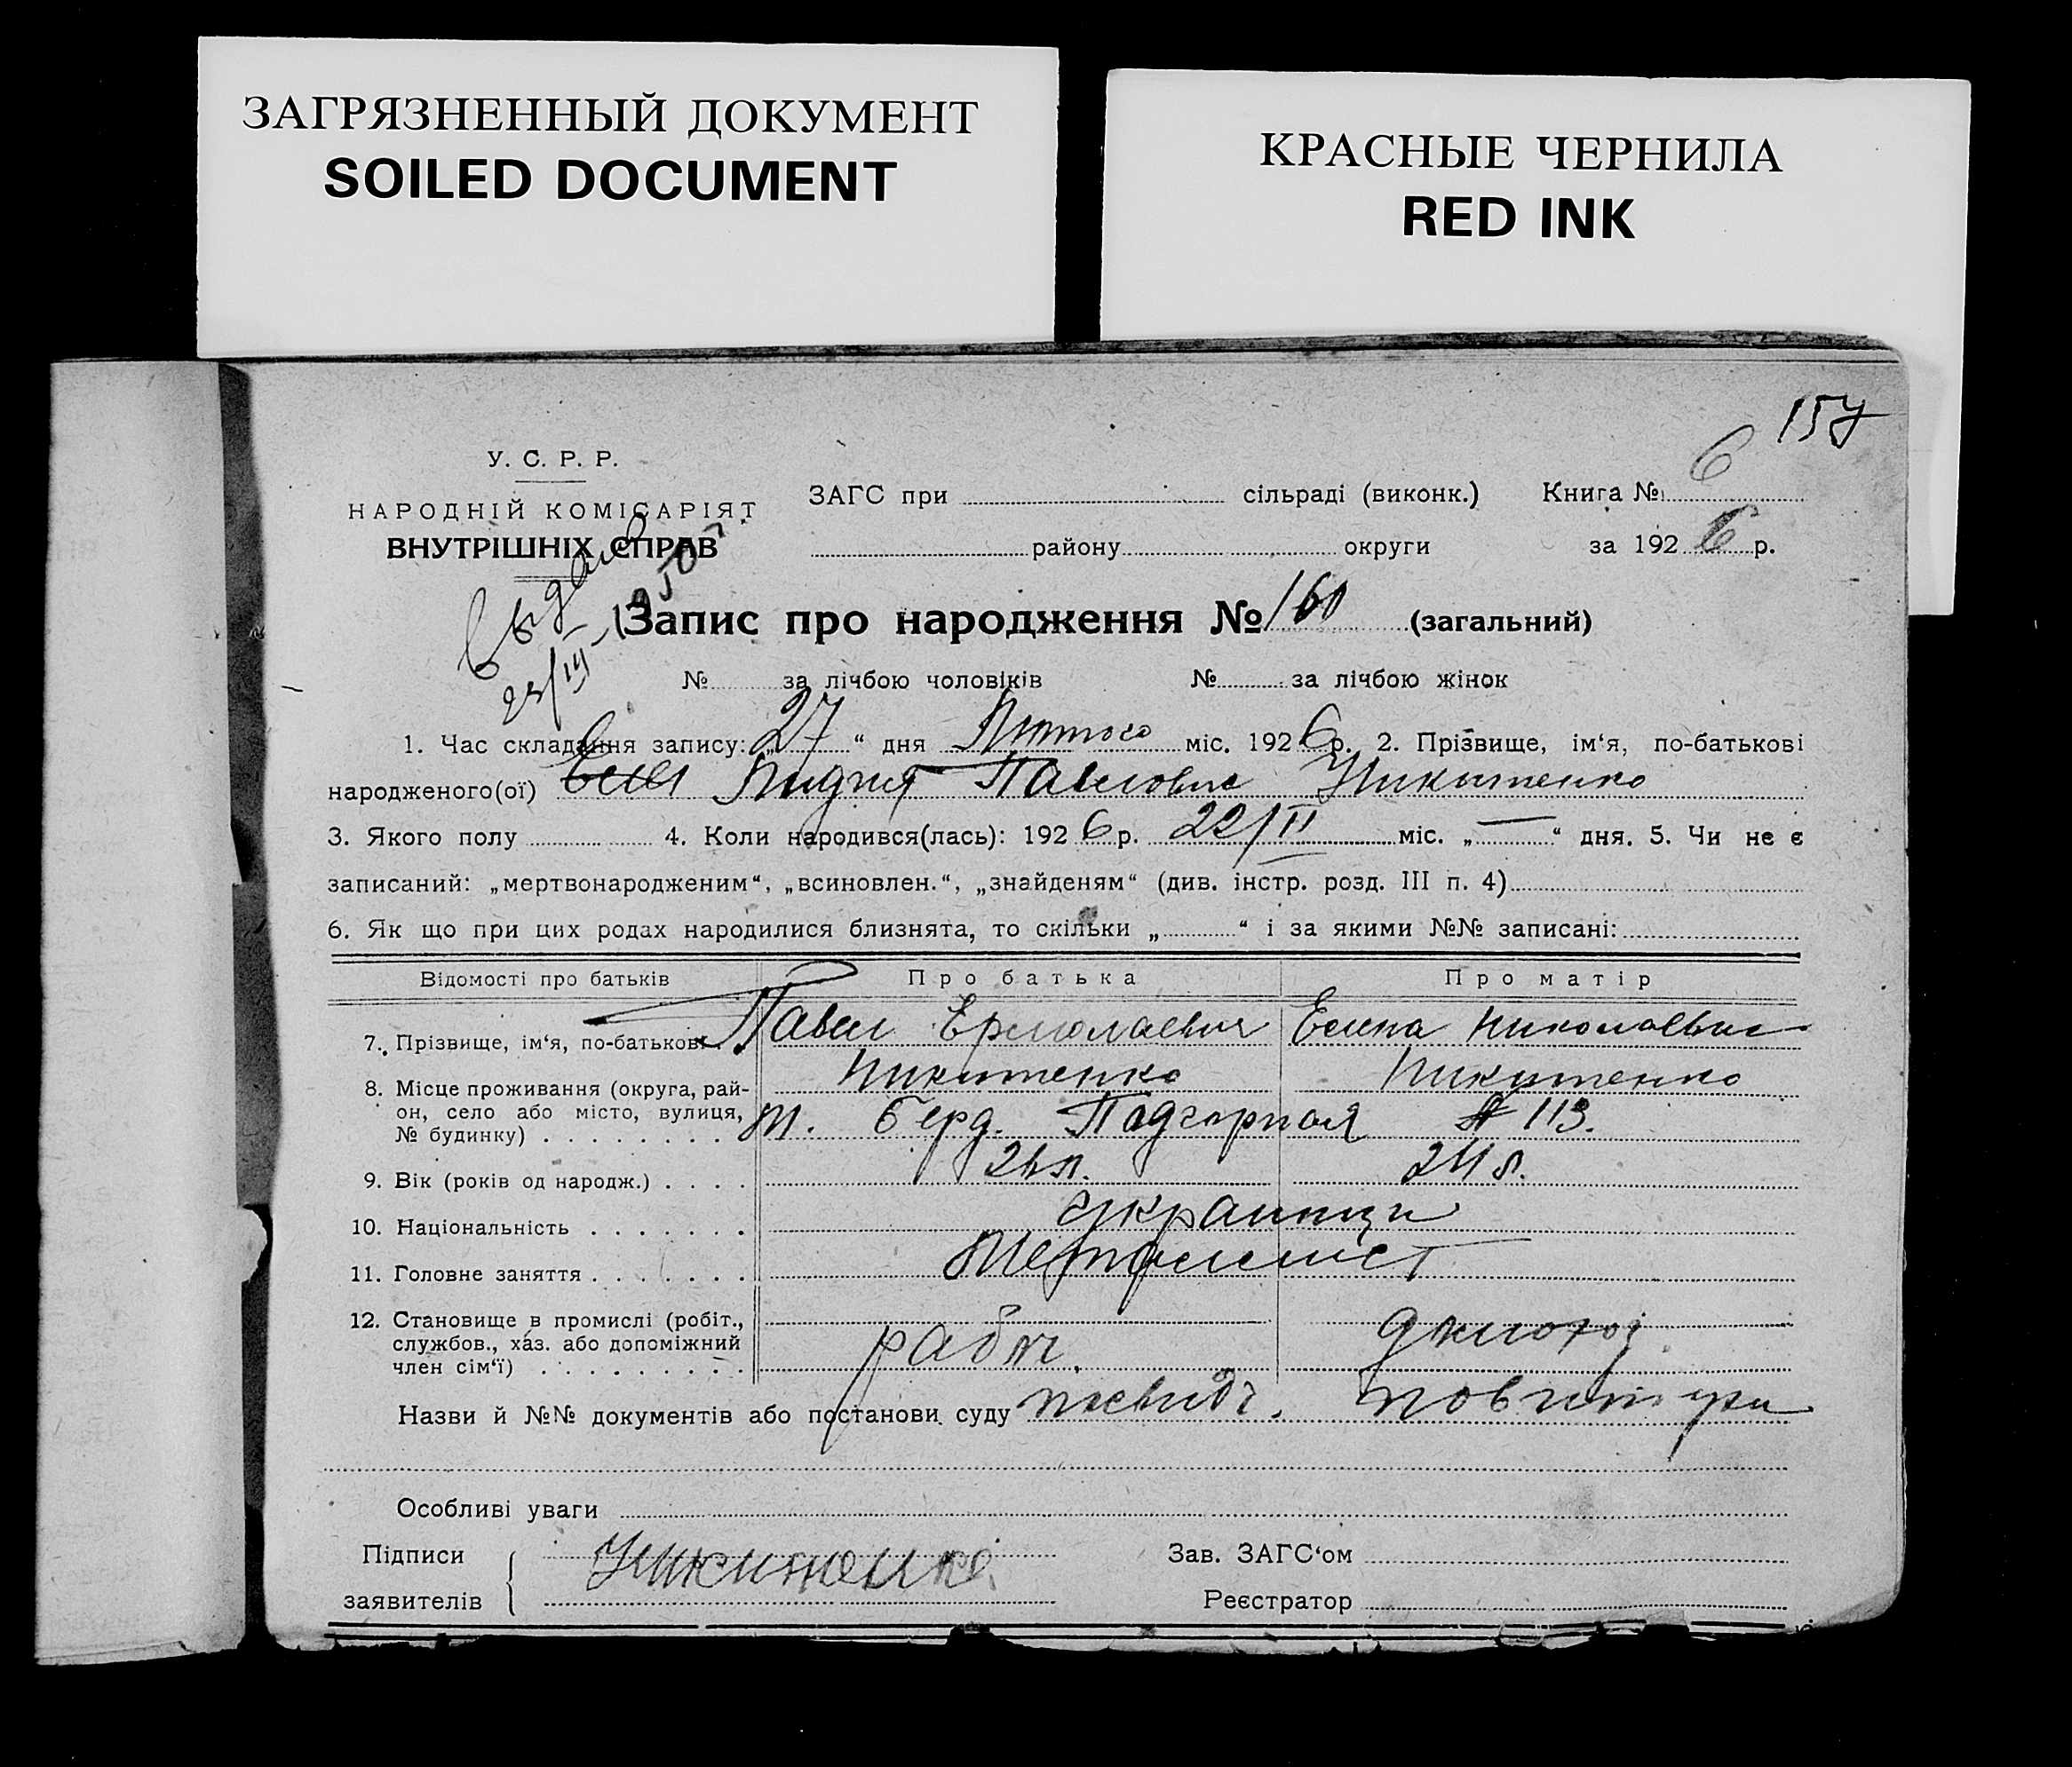 ЗАГРЯЗНЕННЫЙ ДОКУМЕНТ
SOILED DOCUMENT
КРАСНЫЕ ЧЕРНИЛА
RED INK
157
У. С. Р. Р.
НАРОДНІЙ КОМІСАРІЯТ
ВНУТРІШНІХ СПРАВ
ЗАГС при сільраді (виконк.) Книга № 6
району округи за 1926 р.
Выдано
23/III-1950
Запис про народження № 160 (загальний)
№ за лічбою чоловіків № за лічбою жінок
1. Час складання запису: „27“ дня Лютого міс. 1926 р. 2. Прізвище, ім‘я, по-батькові
народженого(ої) Лидия Павловна Никитенко
3. Якого полу 4. Коли народився(лась): 1926 р. 22/II міс. „—“ дня. 5. Чи не є
записаний: „мертвонародженим“, „всиновлен.“, „знайденям“ (див. інстр. розд. III п. 4)
6. Як що при цих родах народилися близнята, то скільки „ “ і за якими №№ записані:
Відомості про батьків Про батька Про матір
7. Прізвище, ім‘я, по-батькові Павел Ермолаевич Елена Николаевна
Никитенко Никитенко
8. Місце проживання (округа, рай-
он, село або місто, вулиця,
№ будинку) м. Берд. Подгорная № 113.
9. Вік (років од народж.) 24 л.
10. Національність украинци
11. Головне заняття Металлист
12. Становище в промислі (робіт.,
службов., хаз. або допоміжний
член сім‘ї) рабоч.
Назви й №№ документів або постанови суду посвидч.
Особливі уваги
Підписи
заявителів Никитенко
Зав. ЗАГС‘ом
Реєстратор